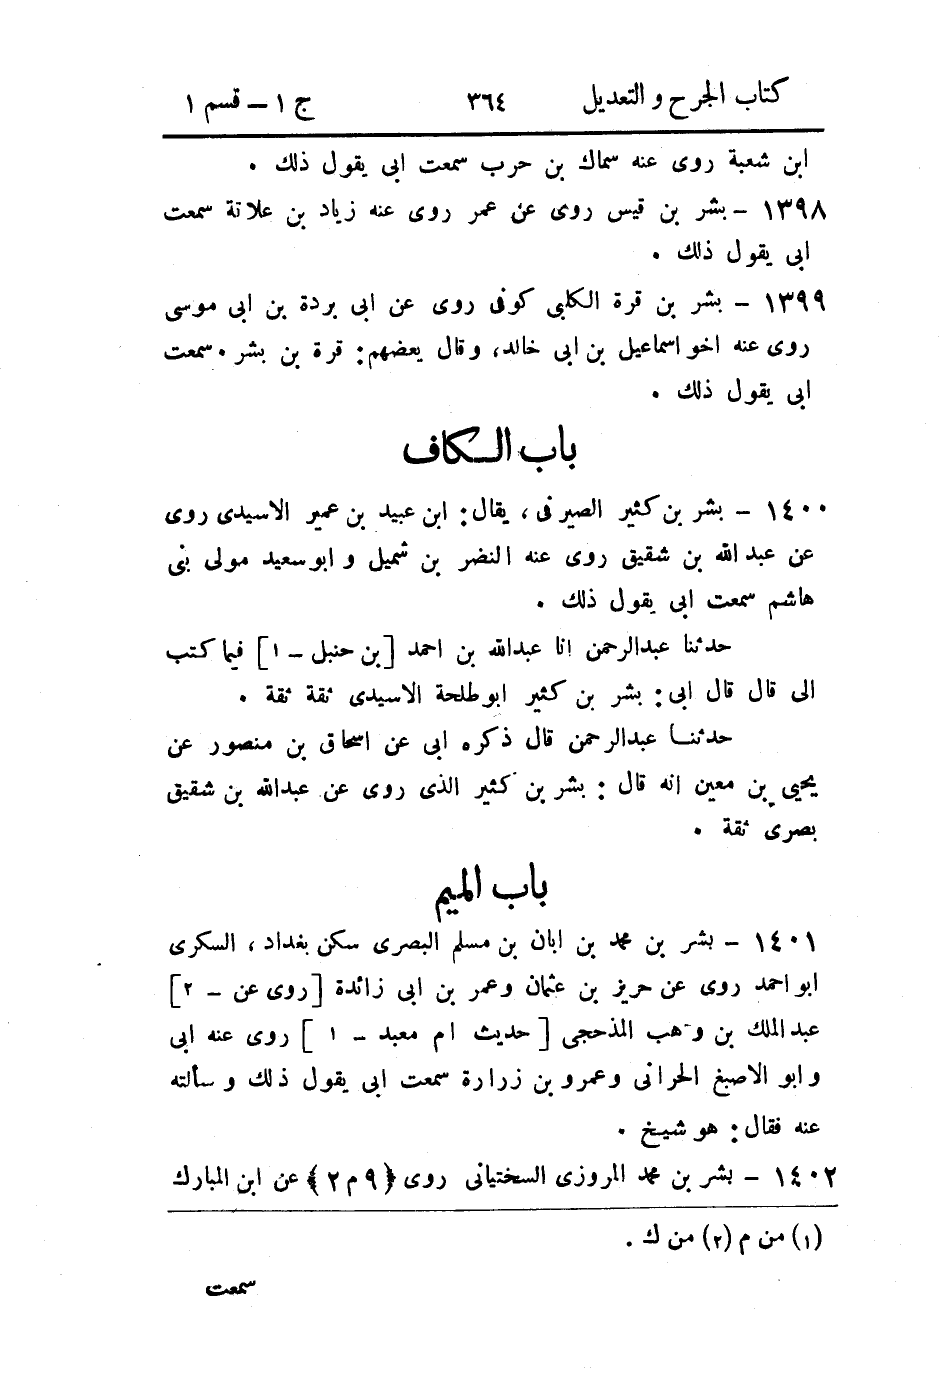 كتاب الجرح و التعديل ٣٦٤ ج ١ – قسم ١
ابن شعبة روى عنه سماك بن حرب سمعت ابى يقول ذلك .
١٣٩٨ – بشر بن قيس روى عن عمر روى عنه زياد بن علاثة سمعت
ابى يقول ذلك .
١٣٩٩ – بشر بن قرة الكلبى كوفى روى عن ابى بردة بن ابى موسى
روى عنه اخو اسماعيل بن ابى خالد، وقال بعضهم: قرة بن بشر . سمعت
ابى يقول ذلك .
باب الكاف
١٤٠٠ – بشر بن كثير الصيرفى، يقال: ابن عبيد بن عمير الاسيدى روى
عن عبد الله بن شقيق روى عنه النضر بن شميل و ابو سعيد مولى بنى
هاشم سمعت ابى يقول ذلك .
حدثنا عبدالرحمن انا عبدالله بن احمد [بن حنبل – ١] فيما كتب
الى قال قال ابى: بشر بن كثير ابو طلحة الاسيدى ثقة ثقة .
حدثنا عبدالرحمن قال ذكره ابى عن اسحاق بن منصور عن
يحيى بن معين انه قال: بشر بن كثير الذى روى عن عبدالله بن شقيق
بصرى ثقة .
باب الميم
١٤٠١ – بشر بن محمد بن ابان بن مسلم البصرى سكن بغداد، السكرى
ابو احمد روى عن حريز بن عثمان وعمر بن ابى زائدة [روى عن – ٢]
عبد الملك بن وهب المذحجى [حديث ام معبد – ١] روى عنه ابى
و ابو الاصبغ الحرانى وعمرو بن زرارة سمعت ابى يقول ذلك و سألته
عنه فقال: هو شيخ .
١٤٠٢ – بشر بن محمد المروزى السختيانى روى ﴿٩ م ٢﴾ عن ابن المبارك
(١) من م (٢) من ك .
سمعت